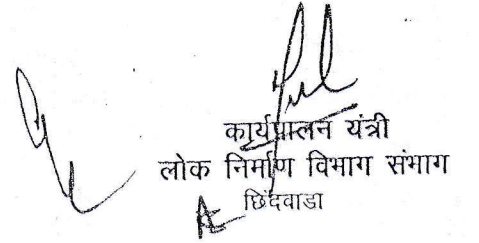 कार्यपालन यंत्री
लोक निर्माण विभाग संभाग
छिंदवाडा